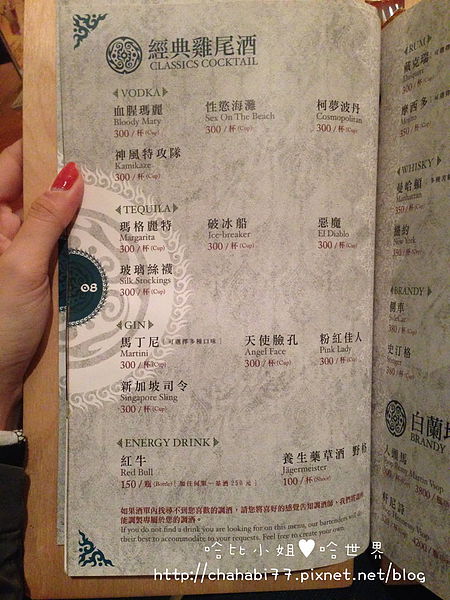 經典雞尾酒
CLASSICS COCKTAIL
VODKA
血腥瑪麗 性慾海灘 柯夢波丹
Bloody Mary Sex On The Beach Cosmopolitan
300 / 杯 (Cup) 300 / 杯 (Cup) 300 / 杯 (Cup)
神風特攻隊
Kamikaze
300 / 杯 (Cup)
TEQUILA
瑪格麗特 破冰船 惡魔
Margarita Ice-breaker El Diablo
300 / 杯 (Cup) 300 / 杯 (Cup) 300 / 杯 (Cup)
玻璃絲襪
Silk Stockings
300 / 杯 (Cup)
08
GIN
馬丁尼 可選擇多種口味 天使臉孔 粉紅佳人
Martini Angel Face Pink Lady
300 / 杯 (Cup) 300 / 杯 (Cup) 300 / 杯 (Cup)
新加坡司令
Singapore Sling
300 / 杯 (Cup)
ENERGY DRINK
紅牛 養生藥草酒 野格
Red Bull Jägermeister
150 / 瓶 (Bottle) 加任何單一基酒 250 元 100 / 杯 (Shot)
如果酒單內找尋不到您喜歡的調酒，請您將喜好的感覺告知調酒師，我們將盡
能調製專屬於您的調酒。
If you do not find a drink you are looking for on this menu, our bartenders will do
their best to accommodate to your requests. Feel free to create your own.
RUM
戴克瑞
Daiquiri
350 / 杯
摩西多
Mojito
350 / 杯
WHISKY
曼哈頓
Manhattan
350 / 杯 (Cup)
紐約
New York
350 / 杯 (Cup)
BRANDY
側車
SideCar
史汀格
Stinger
白蘭地
BRANDY
人頭馬
軒尼詩
哈比小姐♥哈世界
http://chahabi77.pixnet.net/blog